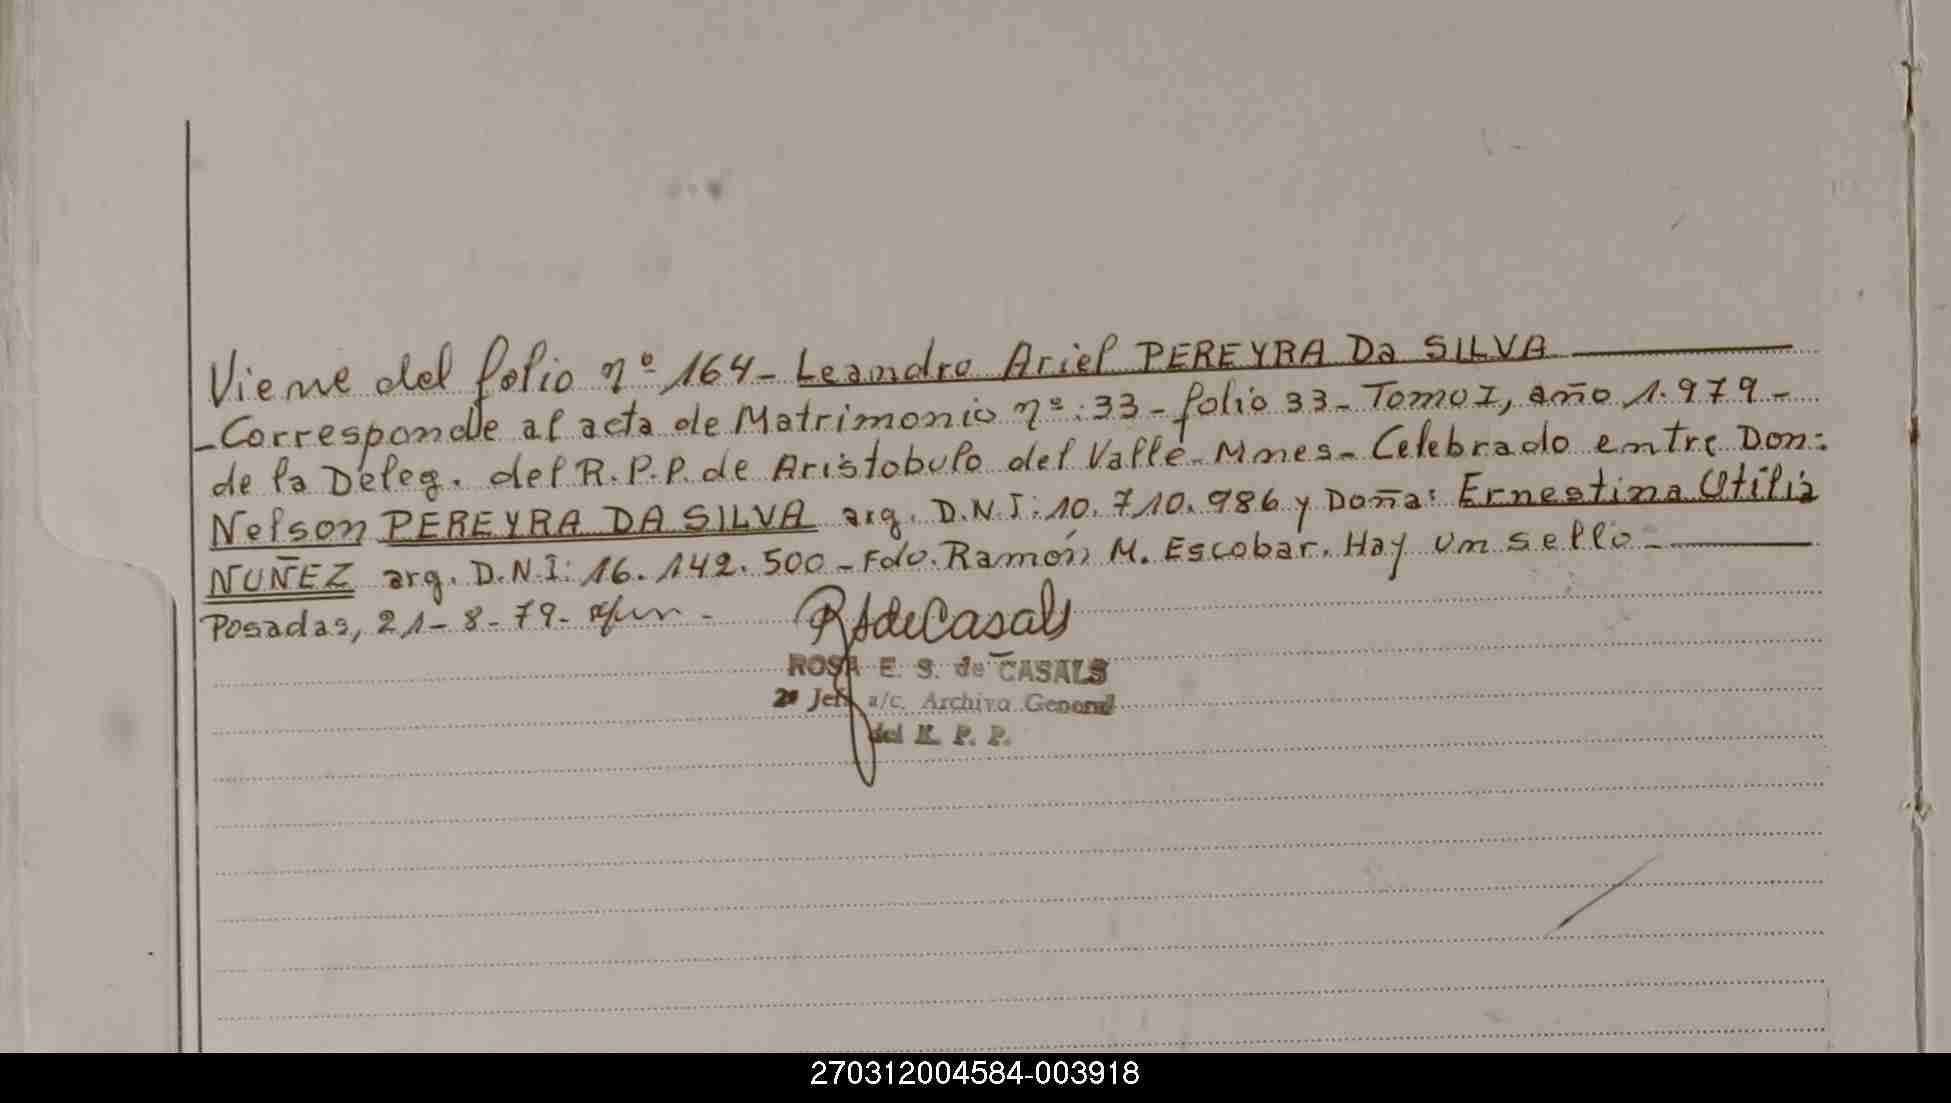 Viene del folio nº 164- Leandro Ariel PEREYRA Da SILVA
-Corresponde al acta de Matrimonio nº: 33- folio 33- Tomo I, año 1.979-
de la Deleg. del R.P.P. de Aristobulo del Valle- Mnes- Celebrado entre Don:
Nelson PEREYRA DA SILVA arg. D.N.I: 10.710.986 y Doña: Ernestina Otilia
NUÑEZ arg. D.N.I: 16.142.500- Fdo. Ramón M. Escobar. Hay un sello-
Posadas, 21-8-79-
RSdeCasals
ROSA E. S. de CASALS
2º Jefe a/c. Archivo General
del R. P. P.
270312004584-003918